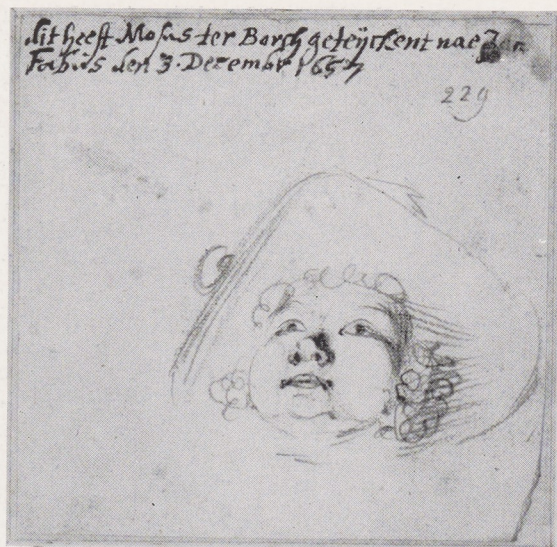 dit heeft Moses ter Borch geteijckent nae Jan
Fabus den 3 Decembr 1657
229